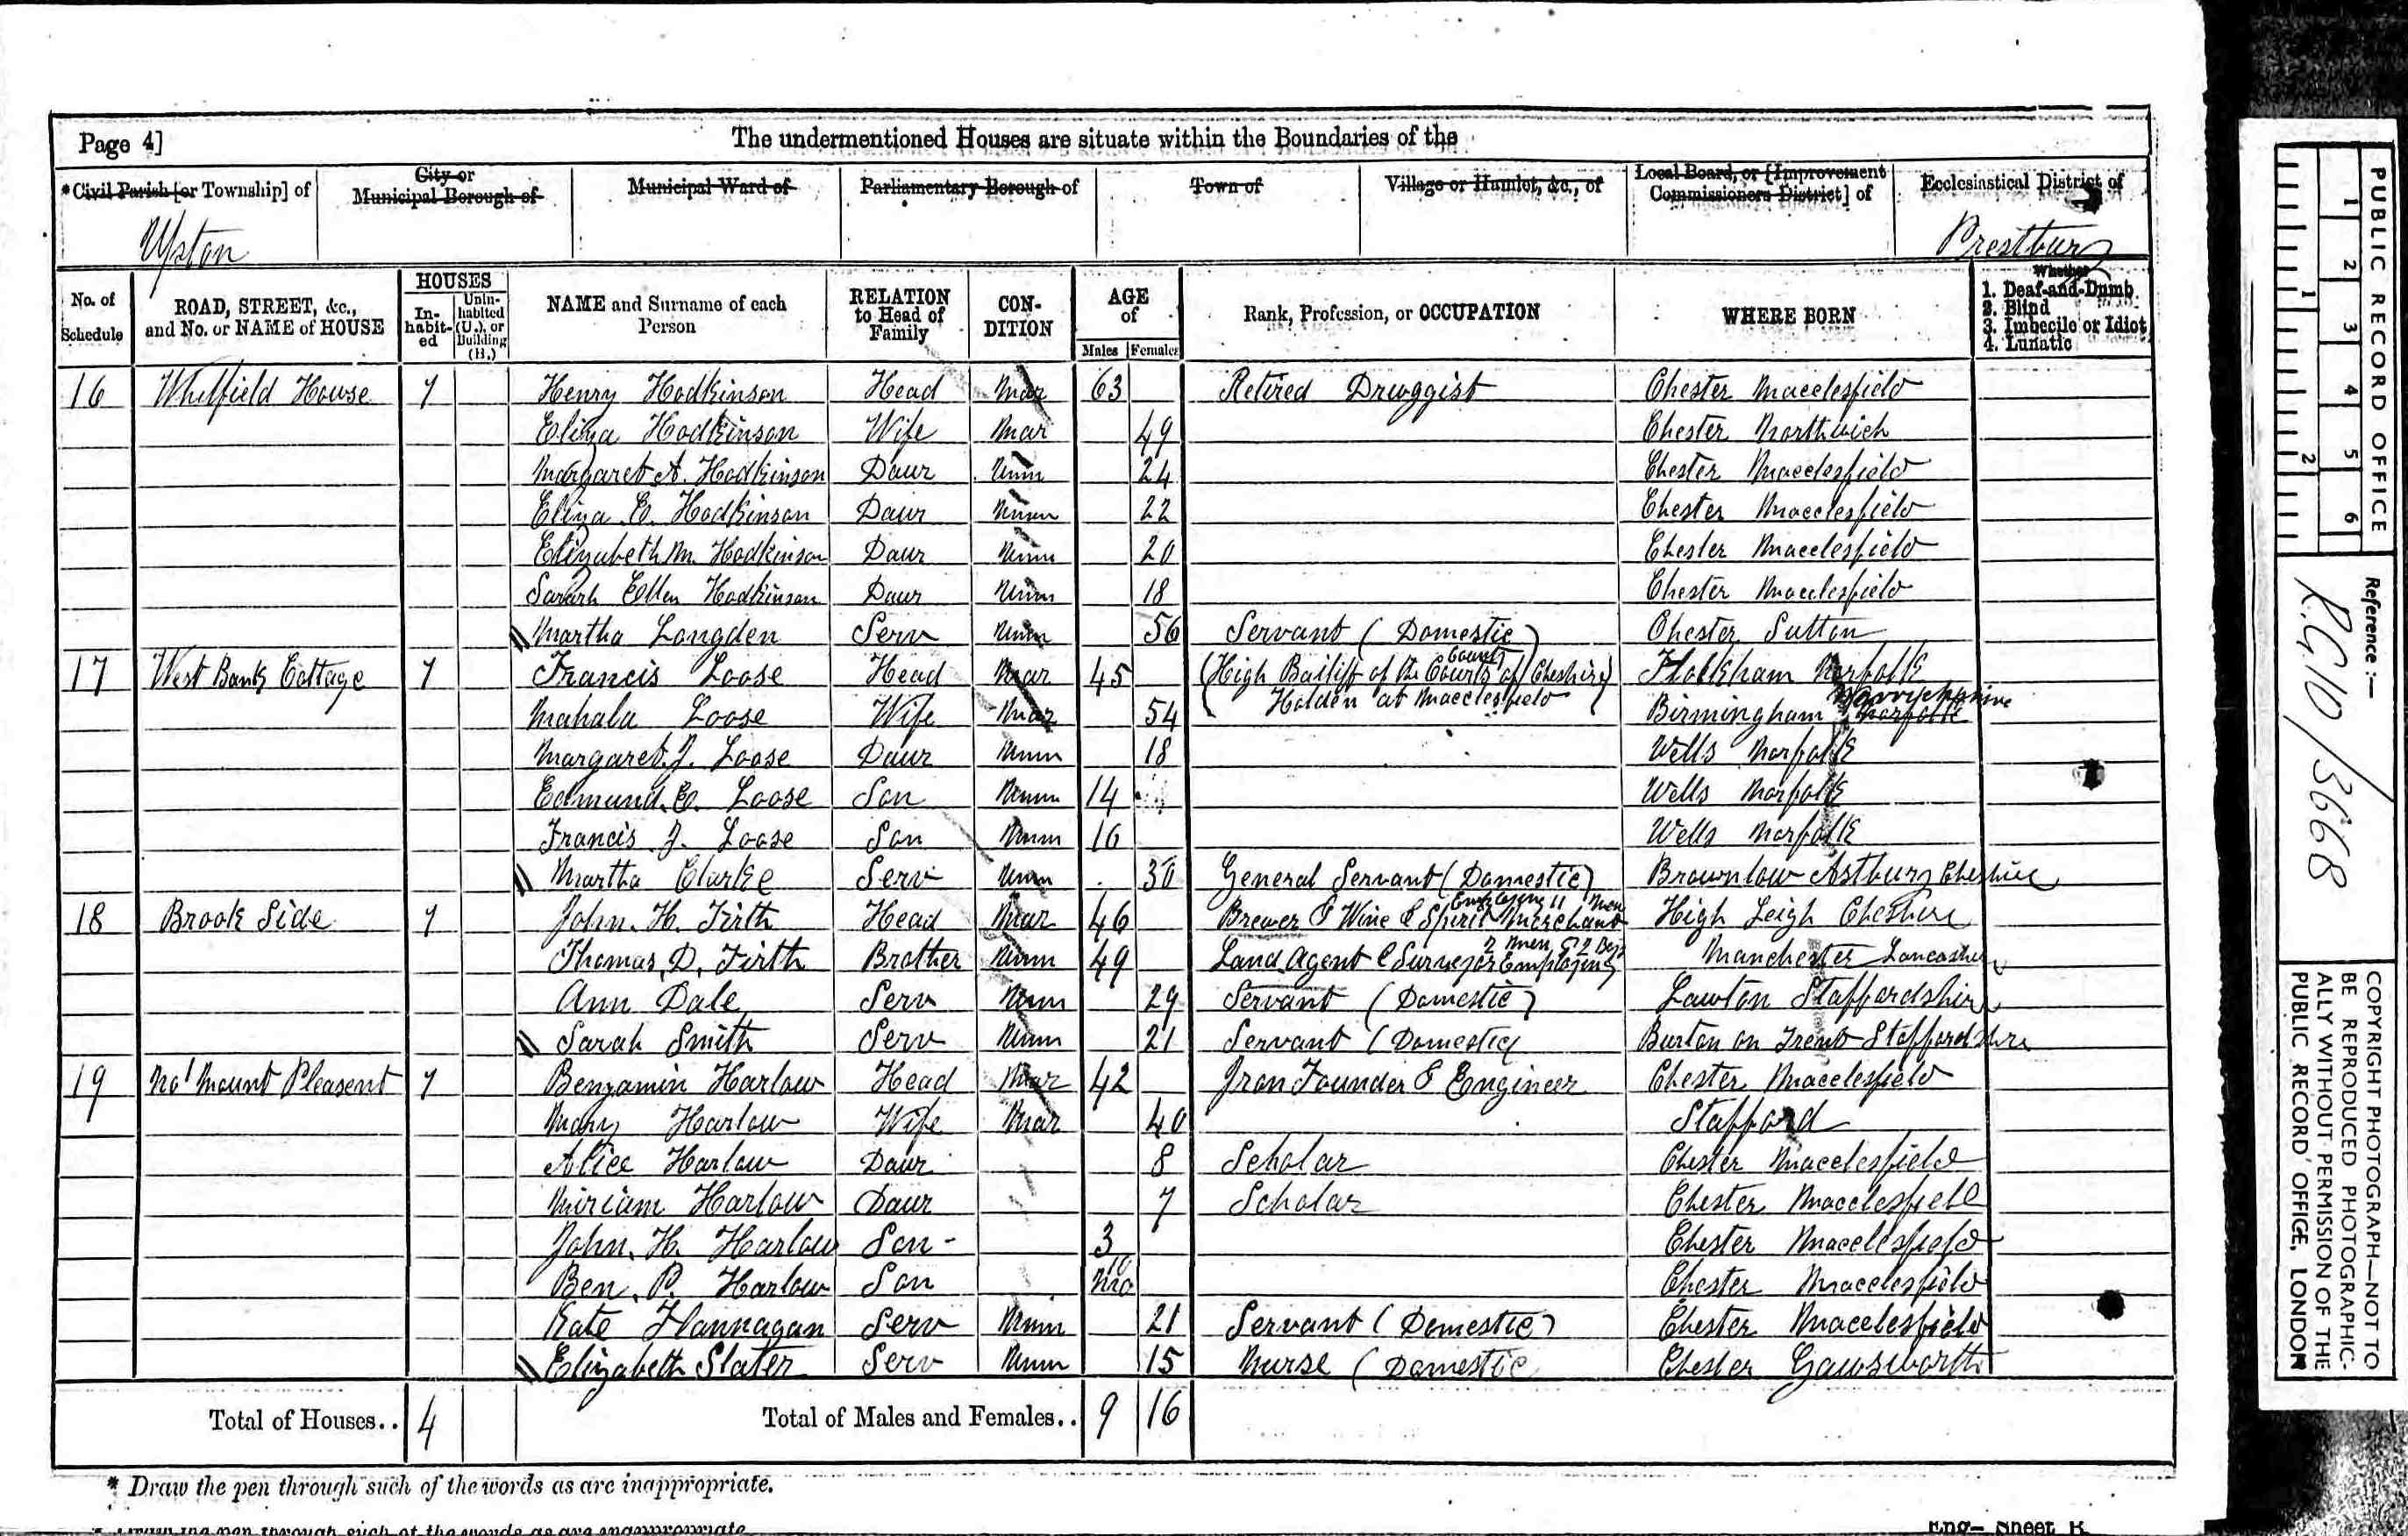 Page 4] The undermentioned Houses are situate within the Boundaries of the
*Civil Parish [or Township] of City or Municipal Borough of Municipal Ward of Parliamentary Borough of Town of Village or Hamlet, &c., of Local Board, or [Improvement Commissioners District] of Ecclesiastical District of
Upton Prestbury
No. of Schedule ROAD, STREET, &c., and No. or NAME of HOUSE HOUSES Inhabited Uninhabited (U.), or Building (B.) NAME and Surname of each Person RELATION to Head of Family CONDITION AGE of Males Females Rank, Profession, or OCCUPATION WHERE BORN Whether 1. Deaf-and-Dumb 2. Blind 3. Imbecile or Idiot 4. Lunatic
16 Whitfield House 1 Henry Hodkinson Head Mar 63 Retired Druggist Chester Macclesfield
Eliza Hodkinson Wife Mar 49 Chester Northwich
Margaret A. Hodkinson Daur Unm 24 Chester Macclesfield
Eliza C. Hodkinson Daur Unm 22 Chester Macclesfield
Elizabeth M. Hodkinson Daur Unm 20 Chester Macclesfield
Sarah Ellen Hodkinson Daur Unm 18 Chester Macclesfield
Martha Longden Serv Unm 56 Servant (Domestic) Chester Sutton
17 West Bank Cottage 1 Francis Loose Head Mar 45 (High Bailiff of the County Courts of Cheshire) Norfolk
Mahala Loose Wife Mar 54 Holden at Macclesfield Birmingham Norfolk
Margaret J. Loose Daur Unm 18 Wells Norfolk
Edmund C. Loose Son Unm 14 Wells Norfolk
Francis J. Loose Son Unm 16 Wells Norfolk
Martha Clarke Serv Unm 30 General Servant (Domestic) Brownlow Astbury Cheshire
18 Brook Side 1 John. H. Firth Head Mar 46 Brewer & Wine & Spirit Merchant Employing 11 Men High Leigh Cheshire
Thomas. D. Firth Brother Unm 49 Land Agent & Surveyor Employing 2 Men & 2 Boys Manchester Lancashire
Ann Dale Serv Unm 29 Servant (Domestic) Lawton Staffordshire
Sarah Smith Serv Unm 21 Servant (Domestic( Burton on Trent Staffordshire
19 No 1 Mount Pleasent 1 Benjamin Harlow Head Mar 42 Iron Founder & Engineer Chester Macclesfield
Mary Harlow Wife Mar 40 Stafford
Alice Harlow Daur 8 Scholar Chester Macclesfield
Miriam Harlow Daur 7 Scholar Chester Macclesfield
John. H. Harlow Son - 3 Chester Macclesfield
Ben. P. Harlow Son 10 Mo Chester Macclesfield
Kate Flannagan Serv Unm 21 Servant (Domestic) Chester Macclesfield
Elizabeth Slater Serv Unm 15 Nurse (Domestic Chester Gawsworth
Total of Houses.. 4 Total of Males and Females.. 9 16
* Draw the pen through such of the words as are inappropriate.
Eng- Sheet
PUBLIC RECORD OFFICE
1 2 3 4 5 6
1 2
Reference :-
R.G.10/3668
COPYRIGHT PHOTOGRAPH—NOT TO
BE REPRODUCED PHOTOGRAPHIC-
ALLY WITHOUT PERMISSION OF THE
PUBLIC RECORD OFFICE, LONDON